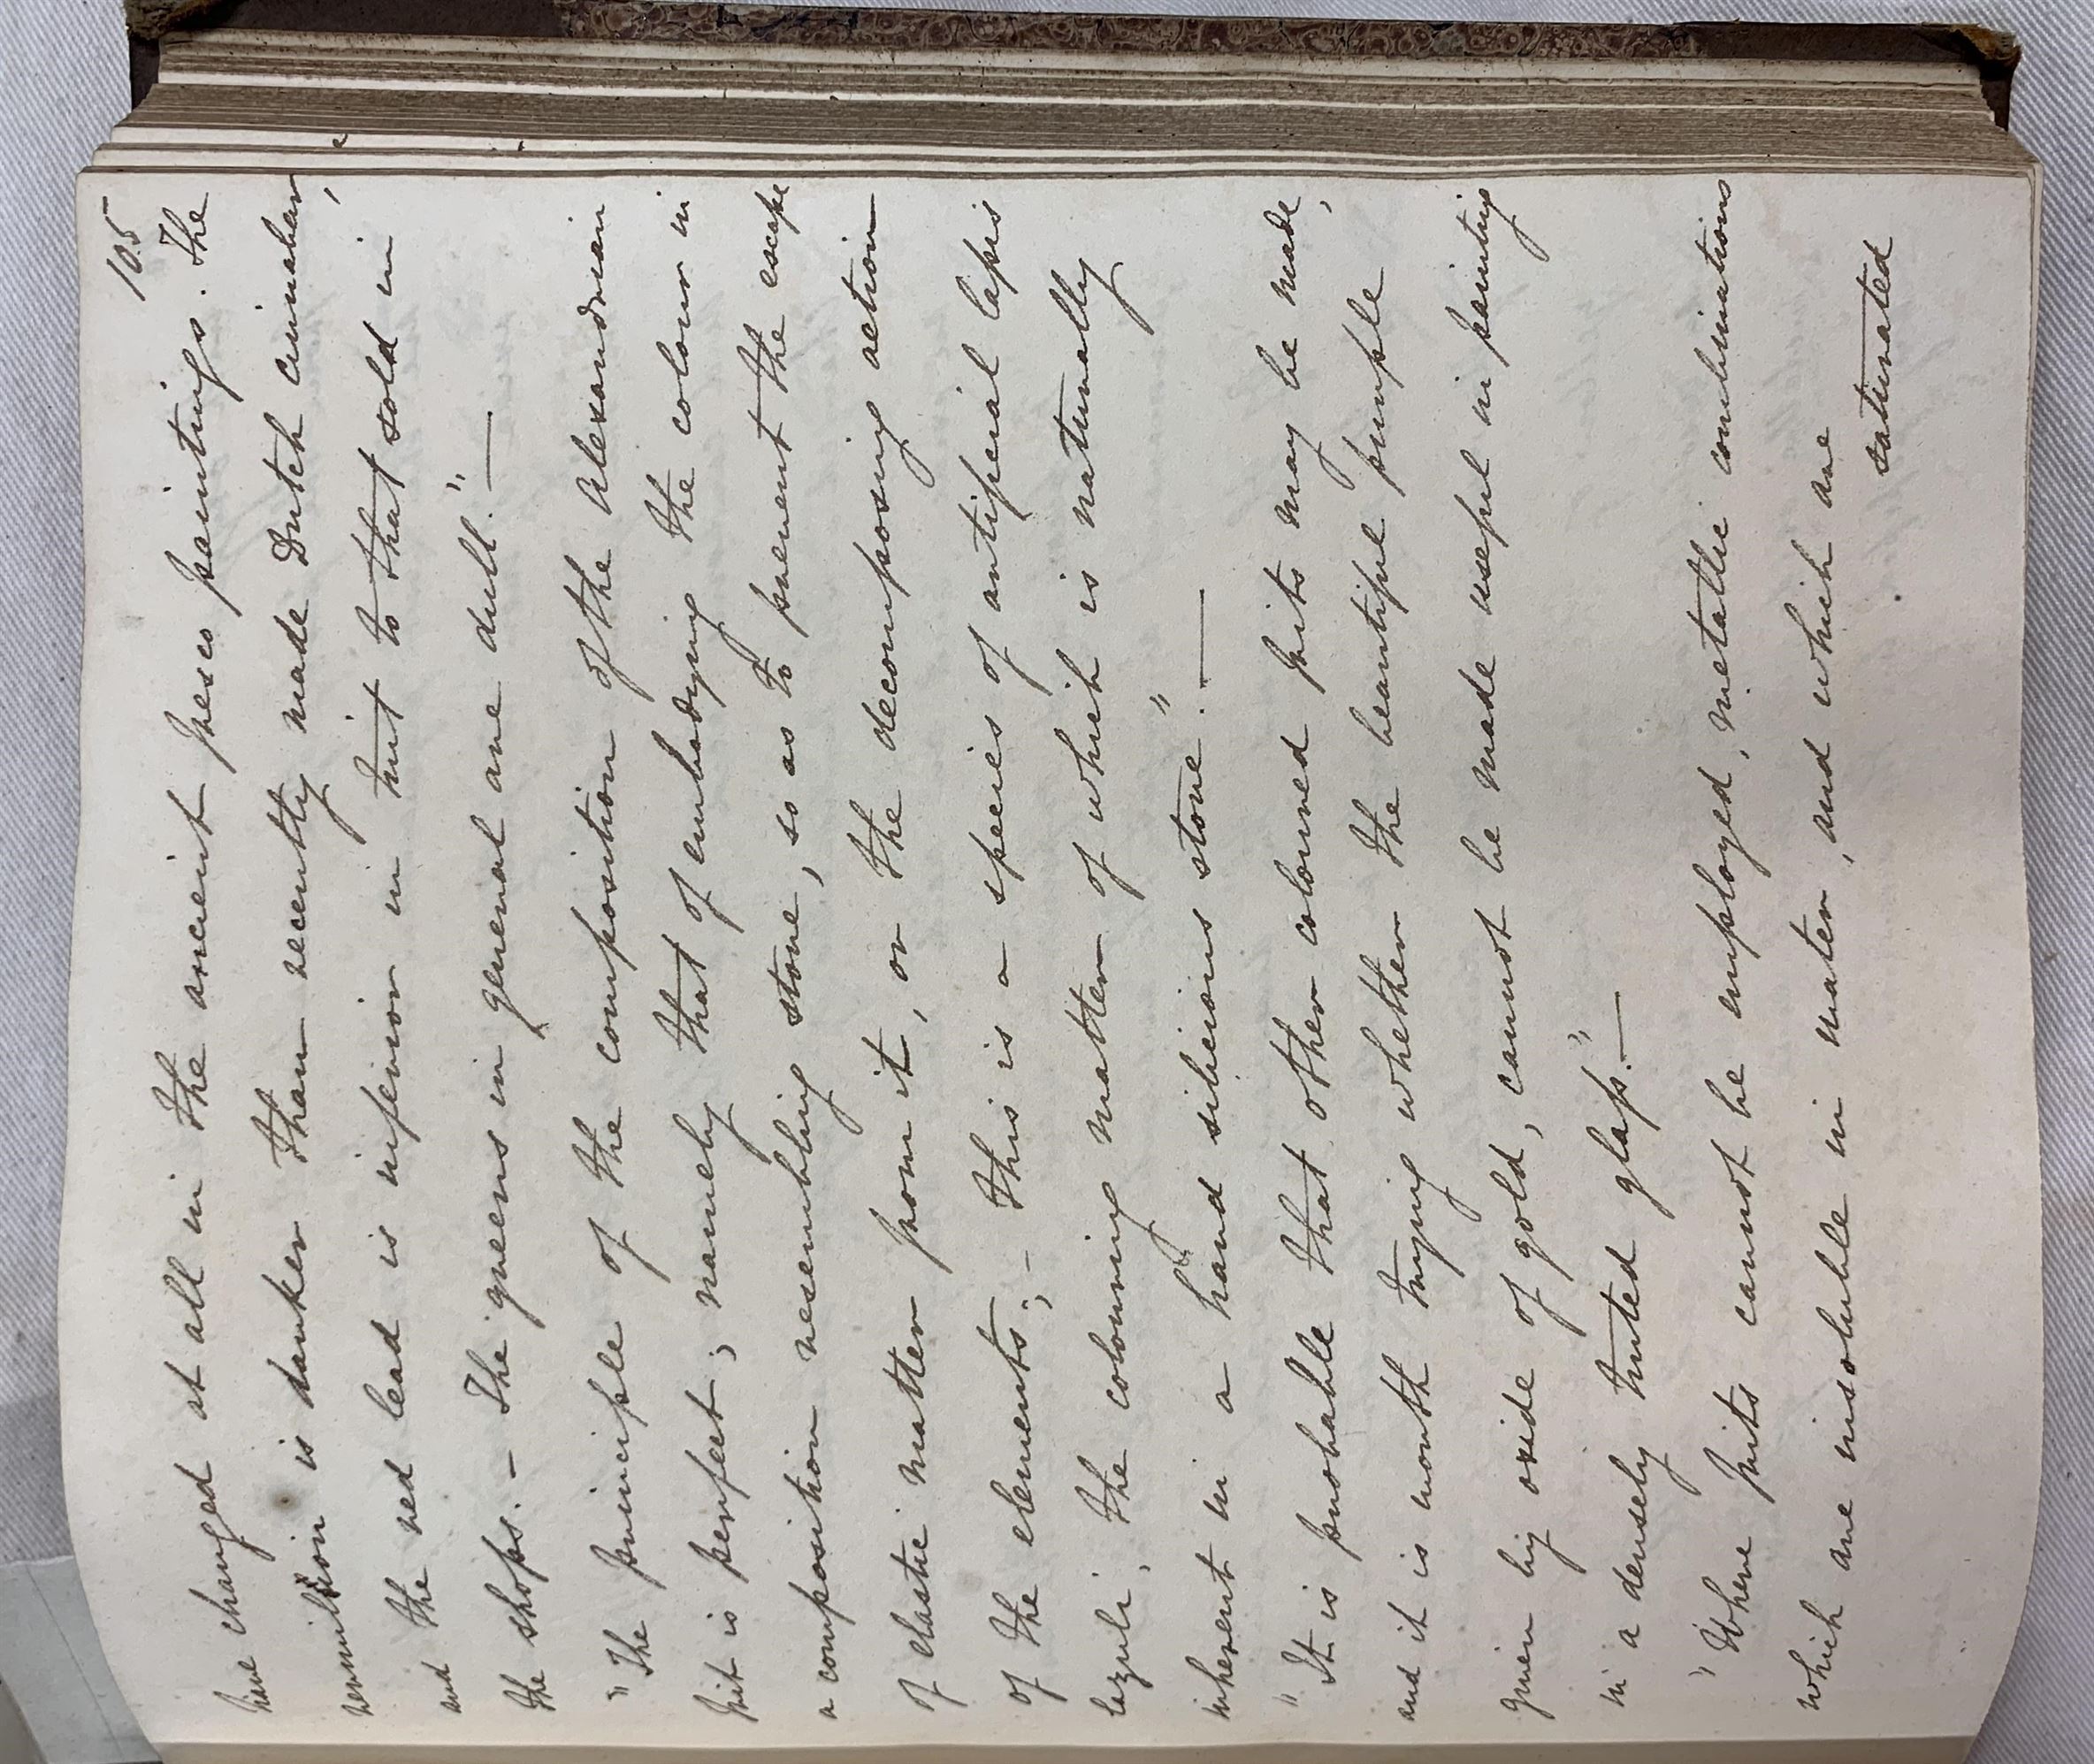 105
have changed at all in the ancient fresco paintings. The
vermillion is darker than recently made Dutch cinnaber,
and the red lead is inferior in tint to that sold in
the shops. - The greens in general are dull." —
"The principle of the composition of the Alexandrian
frit is perfect; namely that of embodying the colour in
a composition resembling stone, so as to prevent the escape
of elastic matter from it, or the decomposing action
of the elements; - this is a species of artificial lapis
lazuli, the colouring matter of which is naturally
inherent in a hard silicious stone." —
"It is probable that other coloured frits may be made,
and it is worth trying whether the beautiful purple
given by oxide of gold, cannot be made useful in painting
in a densely tinted glass." —
"Where frits cannot be employed, metallic combinations
which are insoluble in water, and which are
saturated